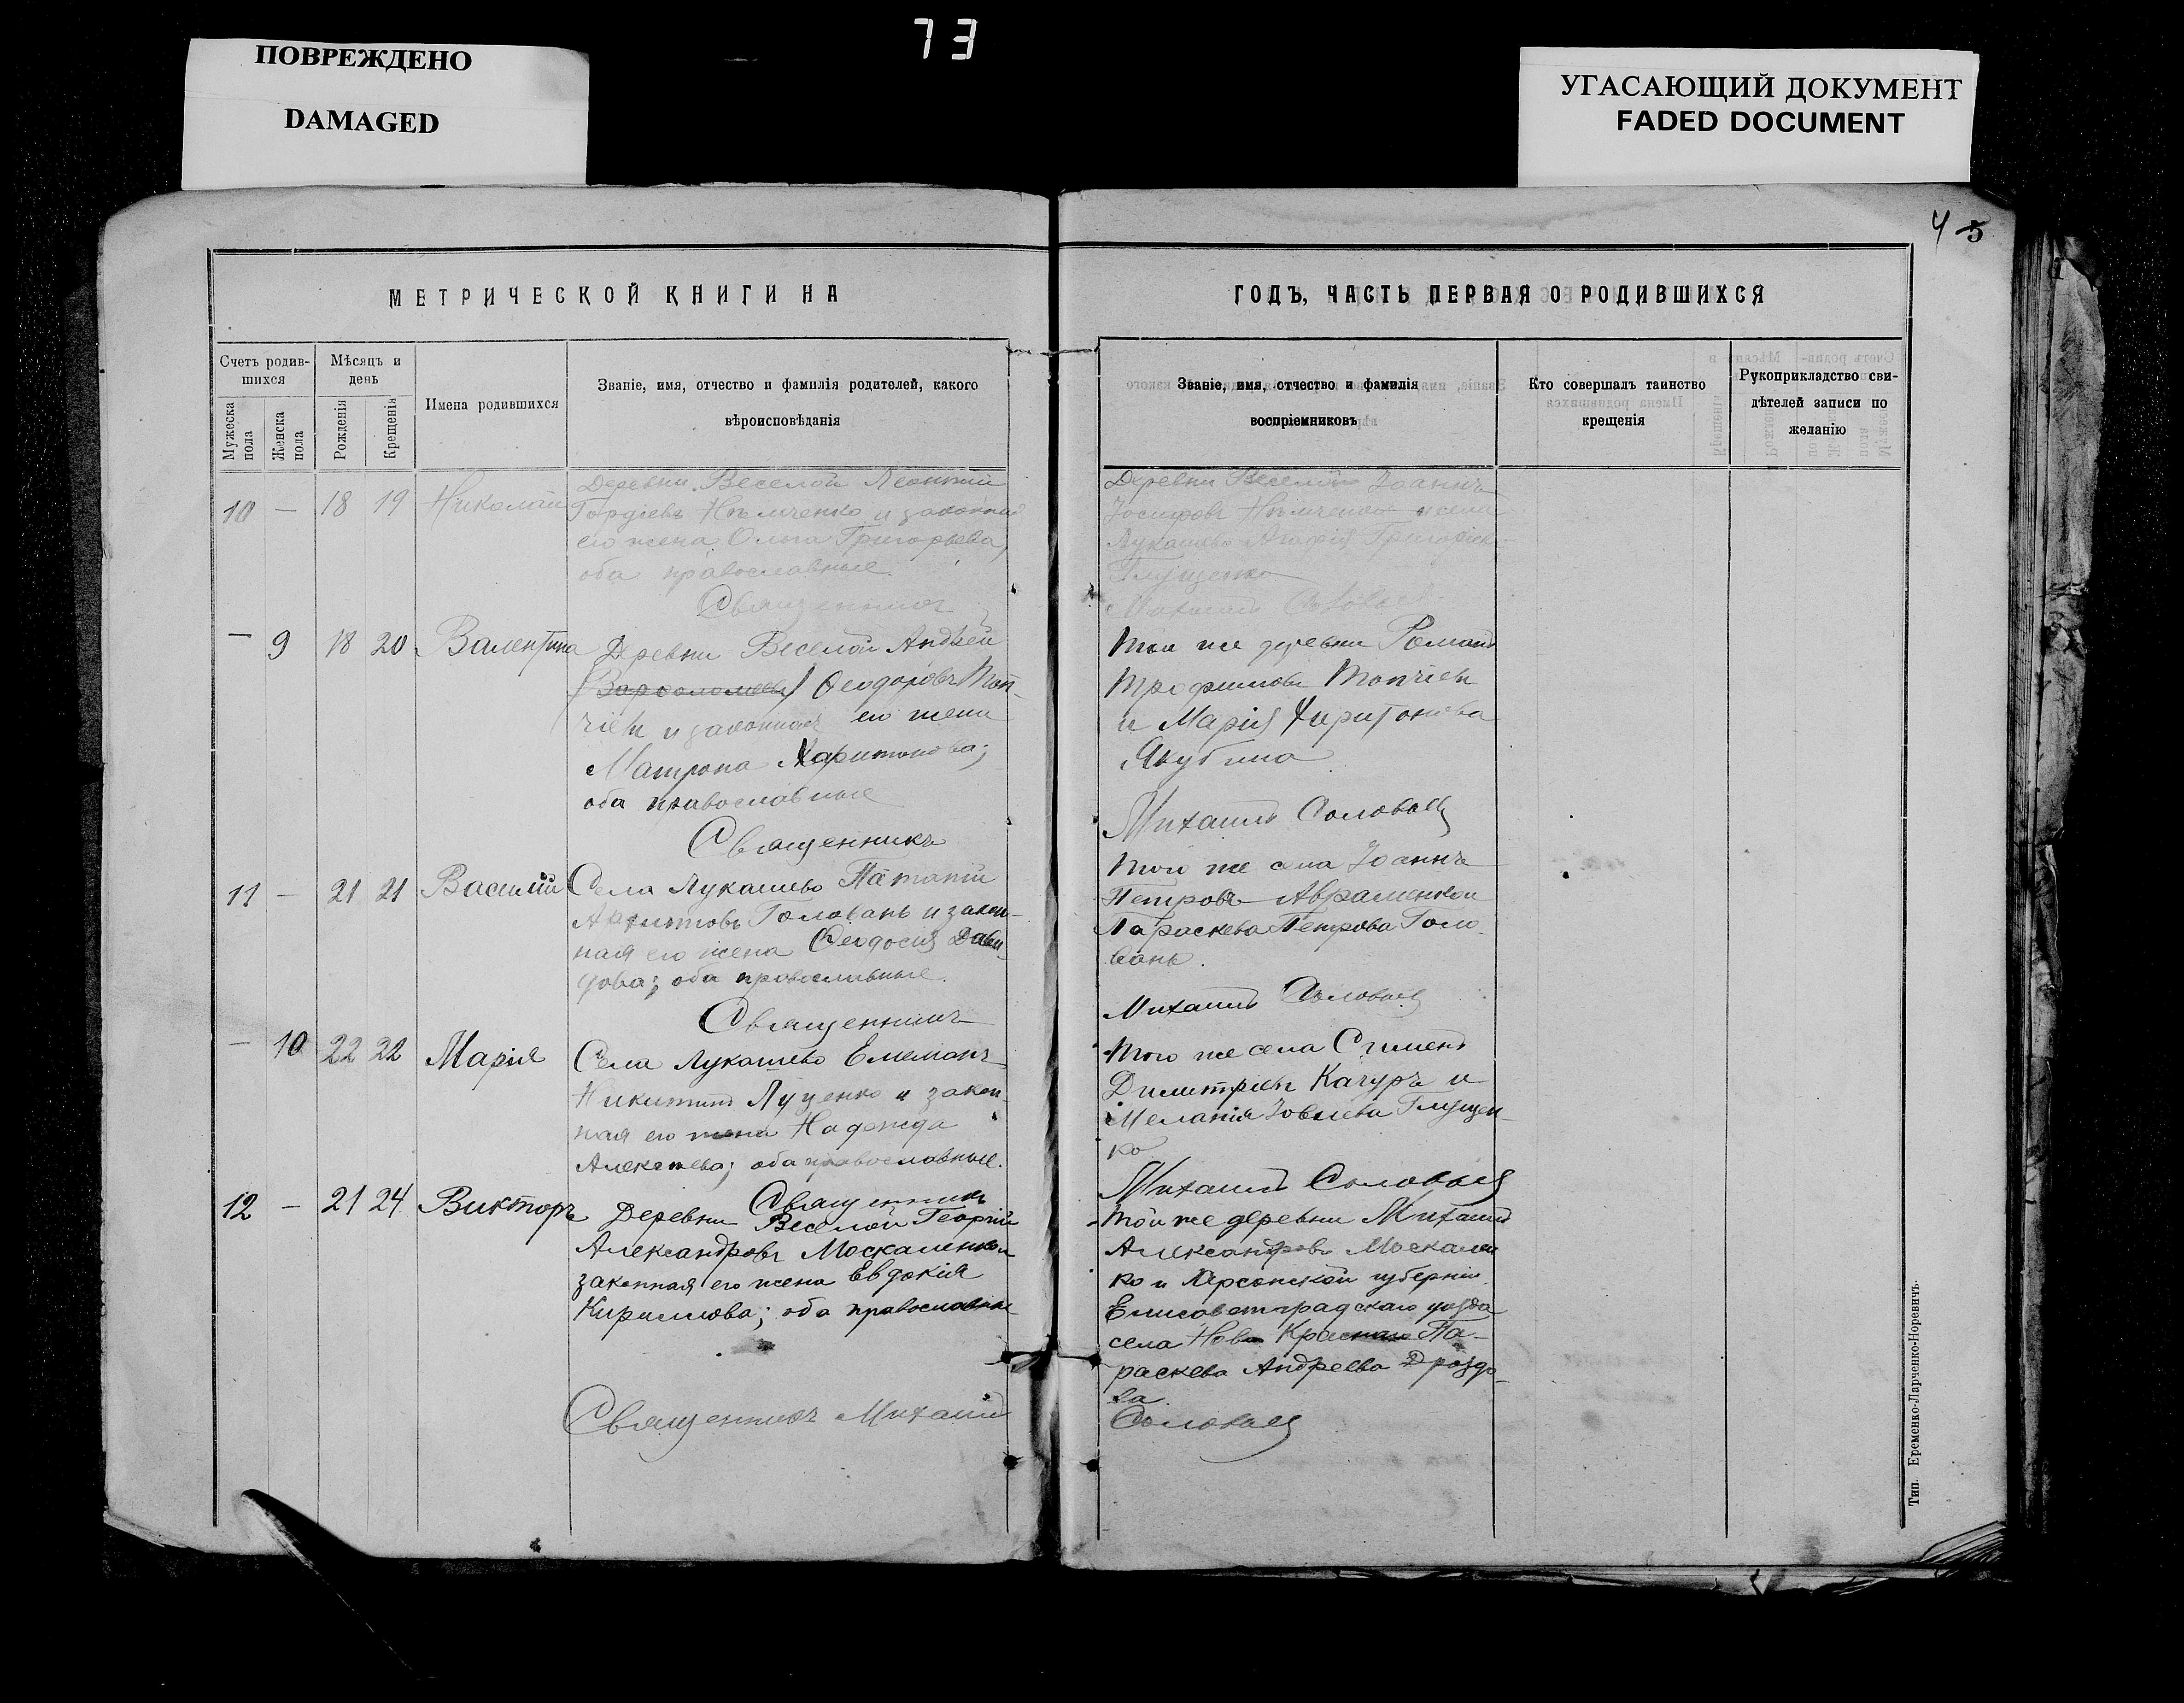 73
ПОВРЕЖДЕНО
DAMAGED
УГАСАЮЩИЙ ДОКУМЕНТ
FADED DOCUMENT
4 5
МЕТРИЧЕСКОЙ КНИГИ НА
ГОДЪ, ЧАСТЬ ПЕРВАЯ О РОДИВШИХСЯ
Счетъ родив-
шихся
Мужеска пола
Женска пола
Мѣсяцъ и
день
Рожденія
Крещенія
Имена родившихся
Званіе, имя, отчество и фамилія родителей, какого
вѣроисповѣданія
Званіе, имя, отчество и фамилія
воспріемниковъ
Кто совершалъ таинство
крещенія
Рукоприкладство сви-
дѣтелей записи по
желанію
10 — 18 19 Николай
Деревни Веселой Леонтій
Гордіевъ Нѣмченко и законная
его жена Ольга Григорьева,
оба православные.
Священникъ
Деревни Веселой Іоаннъ
Іосифовъ Нѣмченко и села
Лукашево Агафія
Глущенко
Михаилъ Соловьев
— 9 18 20 Валентина
Деревни Веселой Андрей
(Варфоломеевъ) Ѳеодоровъ Топ-
чіев и законная его жена
Матрона Харитонова;
оба православные
Священникъ
Той же деревни Романъ
Трофимовъ Топчіев
и Марія Харитонова
Якубина
Михаилъ Соловьев
11 — 21 21 Василій
Села Лукашево Патапій
Головань и закон-
ная его жена Ѳеодосія Дави-
дова; оба православные.
Священникъ
Того же села Іоаннъ
Петровъ Авраменко и
Параскева Петрова Голо-
вань.
Михаилъ Соловьев
— 10 22 22 Марія
Села Лукашево Емельянъ
Никитинъ Луценко и закон-
ная его жена Надежда
Алексѣева; оба православные.
Священникъ
Того же села
Димитріевъ Качуръ и
Меланія Іовлева Глущен-
ко
Михаилъ Соловьев
12 — 21 24 Викторъ
Деревни Веселой Георгій
Александровъ Москаленко и
законная его жена Евдокія
Кириллова; оба православные
Священникъ Михаилъ
Той же деревни Михаилъ
Александровъ Москален-
ко и Херсонской губерніи
Елисаветградскаго уѣзда
села Ново Па-
раскева Андреева Дроздо-
ва.
Соловьев
Тип. Еременко-Ларченко-Норевичъ.